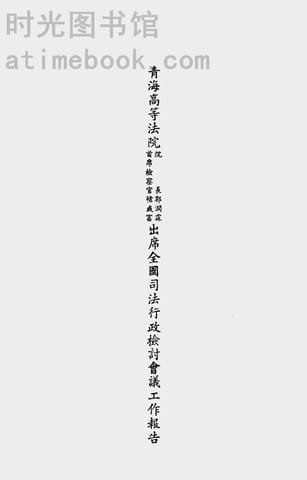 时光图书馆
atimebook.com
青海高等法院
院長郭潤霖
首席檢察官褚成富
出席全國司法行政檢討會議工作報告